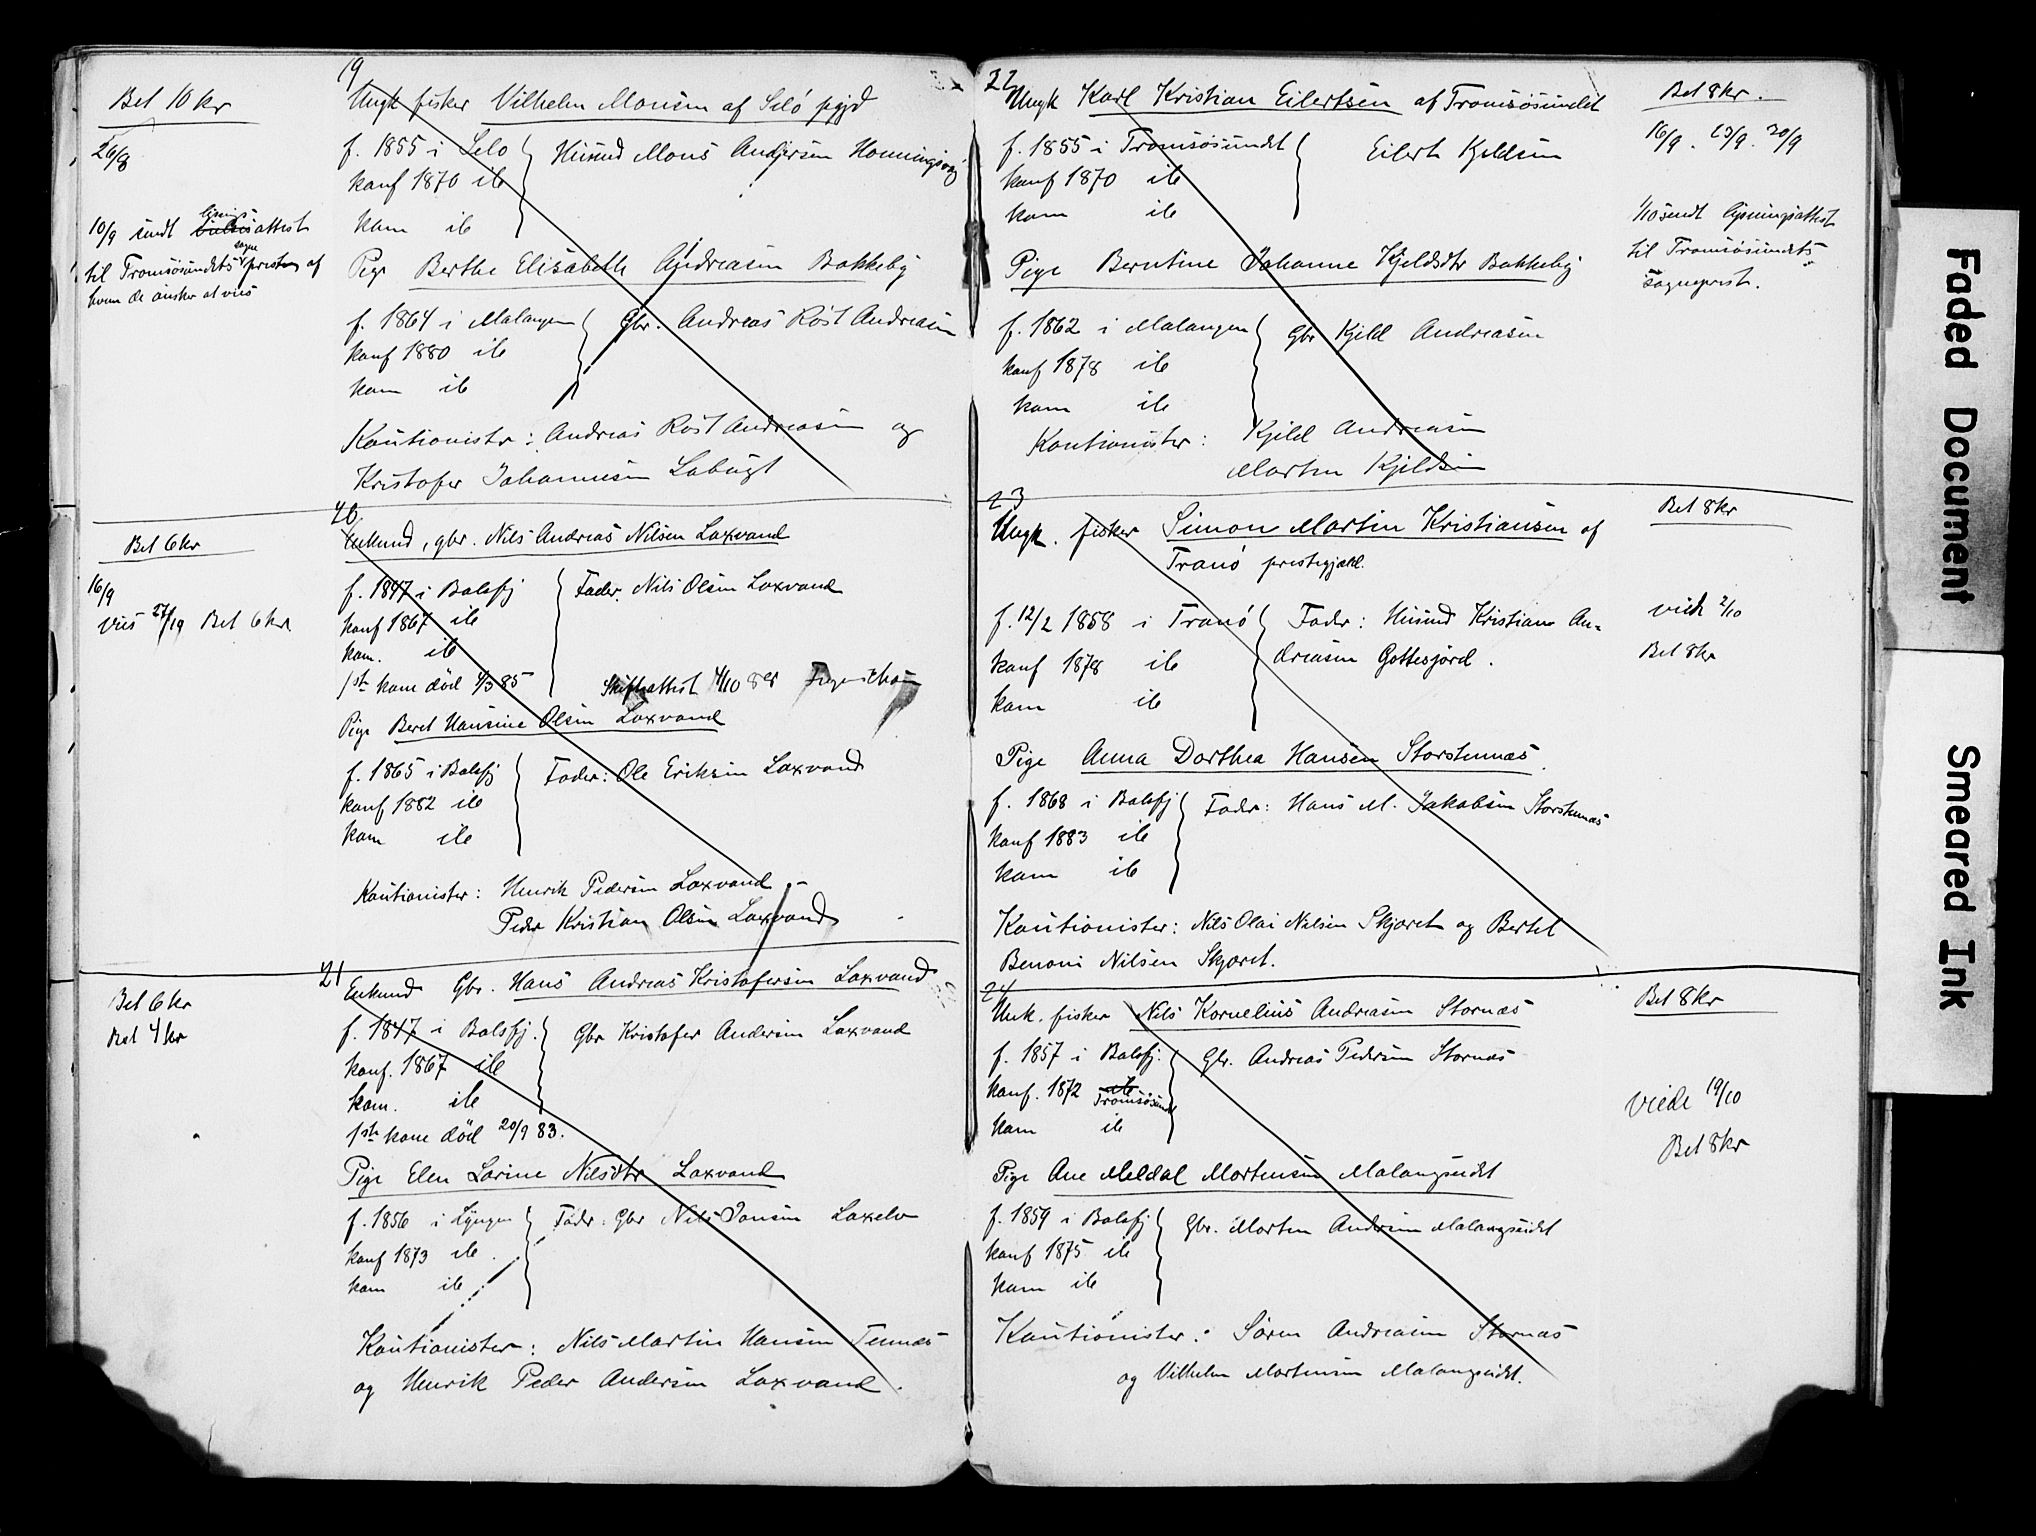 Bet 10 kr
26/8
10/9 sendt lysnings attest
til Tromsøsundets sogneprest af
hvem de ønsker at vies
19
Ungk fisker Vilhelm Monsen af Selø pgjd
f. 1855 i Selø
konf 1870 ib
kom ib
Husmd Mons Andersen Honningsvåg
Pige Berthe Elisabeth Andreasen Bakkeby
f. 1864 i Malangen
konf 1880 ib
kom ib
Gbr. Andreas Røst Andreasen
Kautionister: Andreas Røst Andreasen og
Kristofer Johannesen Labugt
Bet 6 kr
16/9
vies 27/9 Bet 6 kr
20
Enkemd, gbr. Nils Andreas Nilsen Laxvand
f. 1847 i Balsfj
konf 1867 ib
kom. ib
1ste kone død 4/3 85
Fader: Nils Olsen Laxvand
Skifteattest 4/10 85
Pige Beret Hansine Olsen Laxvand
f. 1865 i Balsfj
konf 1882 ib
kom ib
Fader: Ole Eriksen Laxvand
Kautionister: Henrik Pedersen Laxvand
Peder Kristian Olsen Laxvand
Bet 6 kr
Rest 4 kr
21
Enkemd Gbr. Hans Andreas Kristofersen Laxvand
f. 1847 i Balsfj.
konf. 1867 ib
kom. ib
1ste kone død 20/9 83.
Gbr Kristofer Andersen Laxvand
Pige Elen Larine Nilsdtr Laxvand
f. 1856 i Lyngen
konf 1873 ib.
kom ib
Fader: Gbr Nils Jonsen Laxelv
Kautionister: Nils Martin Hansen Tennæs
og Henrik Peder Andersen Laxvand.
22
Ungk Karl Kristian Eilertsen af Tromsøsundet
f. 1855 i Tromsøsundet
konf 1870 ib
kom ib
Eilert Kjeldsen
Pige Berntine Johanne Kjeldsdtr Bakkeby
f. 1862 i Malangen
konf 1878 ib
kom ib
Gbr Kjeld Andreasen
Kautionister: Kjeld Andreasen
Morten Kjeldsen
Bet 8 kr.
16/9. 23/9. 30/9
1/10 sendt lysningsattest
til Tromsøsundets
Sogneprest.
23
Ungk. fisker Simon Martin Kristiansen af
Tranø prestegjæld.
f. 12/2 1858 i Tranø
konf 1878 ib
kom ib
Fader: Husmd Kristian An=
dreasen Gottesjord.
Pige Anna Dorthea Hansen Storstennæs.
f. 1868 i Balsfj
konf 1883 ib
kom ib
Fader: Hans M. Jakobsen Storstennæs
Kautionister: Nils Olai Nilsen Skjæret og Bertel
Benoni Nilsen Skjæret.
Bet 8 kr
viede 2/10
Bet 8 kr
24
Unk. fisker Nils Kornelius Andreasen Stornæs
f. 1857 i Balsfj.
konf. 1872 ib Tromsøsund
kom ib
Gbr. Andreas Pedersen Stornæs
Pige Ane Meldal Mortensen Malangseidet
f. 1859 i Balsfj
konf 1875 ib
kom ib
Gbr. Morten Andersen Malangseidet
Kautionister: Søren Andreasen Stornæs
og Vilhelm Mortensen Malangseidet.
Bet 8 kr
viede 19/10
Bet 8 kr
Faded Document
Smeared Ink